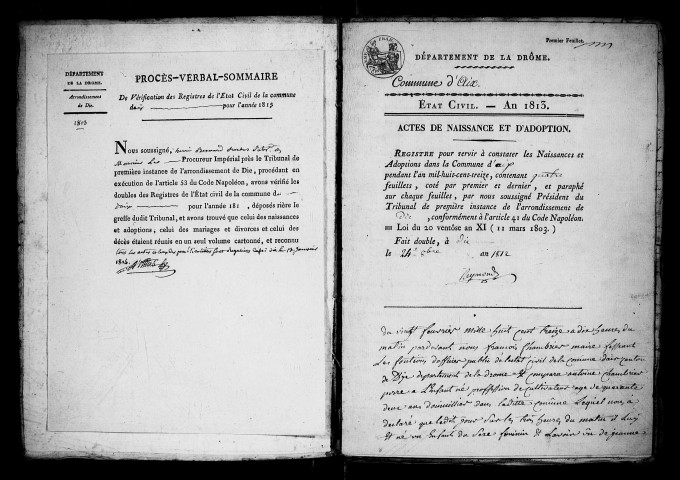 DÉPARTEMENT
DE LA DRÔME.
Arrondissement
de Die.
1813
PROCÈS-VERBAL-SOMMAIRE
De Vérification des Registres de l'État Civil de la commune
daix pour l'année 1813
Nous soussigné,
Procureur Impérial près le Tribunal de
première instance de l'arrondissement de Die, procédant en
exécution de l'article 53 du Code Napoléon, avons vérifié les
doubles des Registres de l'État civil de la commune de
daix pour l'année 181 , déposés rière le
greffe dudit Tribunal, et avons trouvé que celui des naissances
et adoptions, celui des mariages et divorces et celui des
décès étaient réunis en un seul volume cartonné, et reconnu
1814.
Premier Feuillet.
DÉPARTEMENT DE LA DRÔME.
Commune d'Aix.
ETAT CIVIL. — AN 1813.
ACTES DE NAISSANCE ET D'ADOPTION.
REGISTRE pour servir à constater les Naissances et
Adoptions dans la Commune d'aix
pendant l'an mil-huit-cent-treize, contenant quatre
feuillets, coté par premier et dernier, et paraphé
sur chaque feuillet, par nous soussigné Président du
Tribunal de première instance de l'arrondissement de
die , conformément à l'article 41 du Code Napoléon.
= Loi du 20 ventôse an XI ( 11 mars 1803. )
Fait double, à die
le 24 8bre an 1812
Reymond
du vingt fevrier mille huit cent treize a dix heures du
matin pardevant nous françois Chambrier maire faisant
Les fonctions dofficier public de letat civil de la commune daix canton
de Die departement de la drome est comparu antoine chambrier
perre a L'enfant né proffession de cultivateur age de quarante
deux ans domicillier dans laditte commune Lequel nous a
declaré que ledit jour sur les heures du matin
est né un enfant du sexe feminin de jeanne